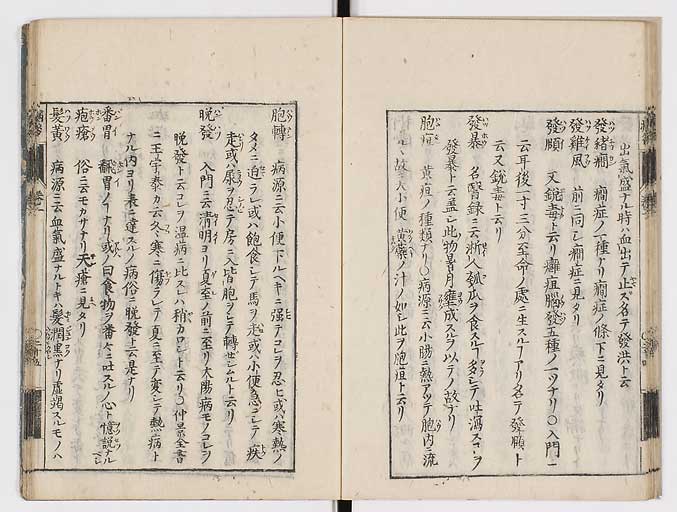 出氣盛ナル時ハ血出テ止ズ名テ發洪ト云
發緒癇 癇症ノ一種ナリ癇症ノ條下ニ見タリ
發雞風 前ニ同シ癇症ニ見タリ
發頤 又銳毒ト云リ癰疽腦發五種ノ一ツナリ〇入門ニ
云耳後一寸三分至命ノ處ニ生スルナリ名テ發頤ト
云又銳毒ト云リ
發暴 名醫錄ニ云浙人瓠瓜ヲ食スルヿ多シテ吐瀉スコレヲ
發暴ト云蓋シ此物暑月ニ成スルヲ以テノ故ナリ
胞疸 黃疸ノ種類ナリ〇病源ニ云小腸ニ熱アツテ胞内ニ流
ルヽ故ニ大小便 黃蘗ノ汁ノ如シ此ヲ胞疸ト云リ
胞轉 病源ニ云小便下ルベキニ强テコレヲ忍ヒ或ハ寒熱ノ
タメニ迫ラレ或ハ飽食シテ馬ヲ走セ或ハ小便急ニシテ疾
走或ハ尿ヲ忍テ房ニ入皆胞ヲシテ轉セシムルト云リ
晚發 入門ニ云清明ヨリ夏至ノ前ニ至リ太陽病モノコレヲ
晚發ト云コレヲ温病ニ比スレハ稍カロシト云リ〇仲景全書
ニ王宇泰カ云冬寒ニ傷ラレテ夏ニ至テ變シテ熱病ト
ナル内ヨリ表ニ達スルノ病俗ニ晚發ト云是ナリ
番胃 飜胃ノイナリ或ノ曰食物ヲ番ケニ吐スルノ心ト憶說ナル
疱瘡 俗ニ云モカサナリ天瘡ニ見タリ
髮黃 病源ニ云血氣盛ナルトキハ髮潤黒ナリ虚竭スルモノハ